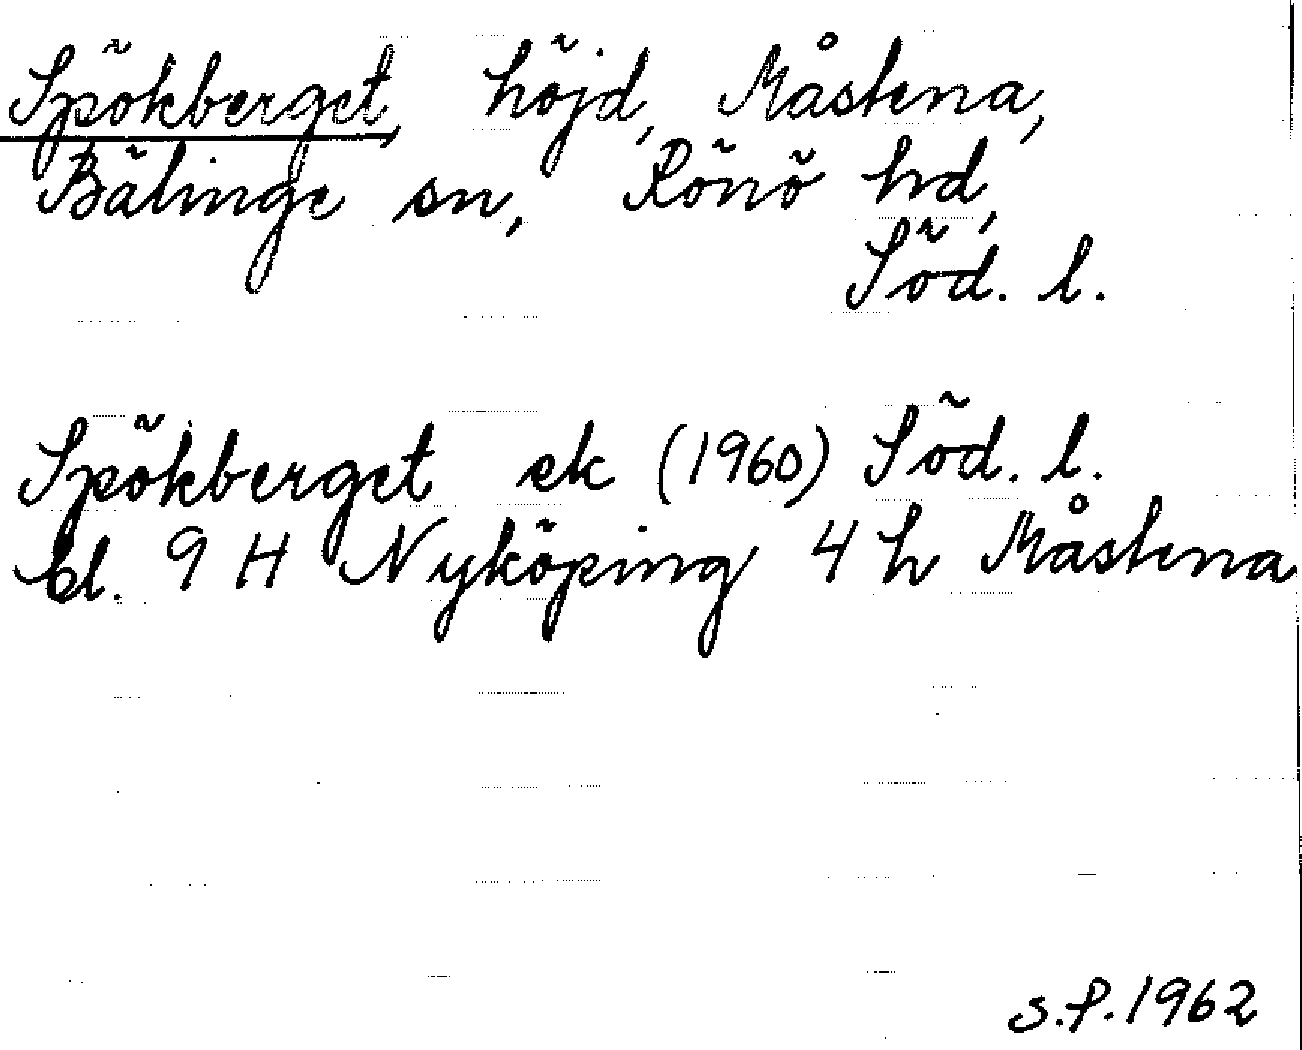 Spökberget, höjd, Måstena,
Bälinge sn, Rönö hd,
Söd. l.
Spökberget ek (1960) Söd. l.
bl. 9 H Nyköping 4 h Måstena
S.P. 1962